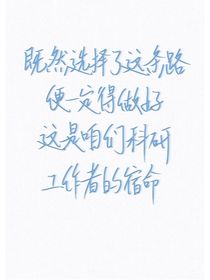 既然选择了这条路
便一定得做好
这是咱们科研
工作者的宿命